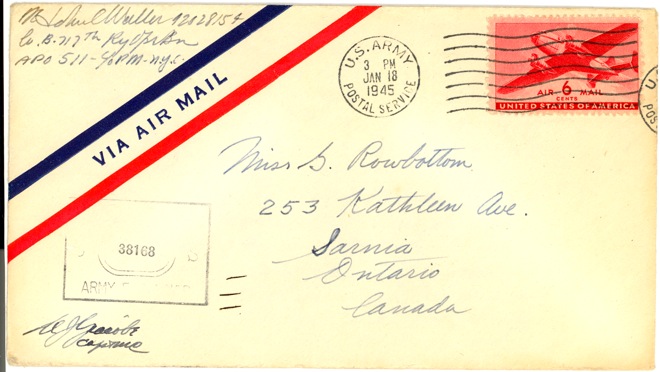 John C Waller 12028154
Co. B. 717th Ry Op Bn
APO 511 - % PM - N.Y.C.
VIA AIR MAIL
U.S. ARMY
3 PM
JAN 18
1945
POSTAL SERVICE
AIR 6 MAIL
CENTS
UNITED STATES OF AMERICA
U.
POS
Miss G. Rowbottom
253 Kathleen Ave.
Sarnia
Ontario
Canada
38168
ARMY